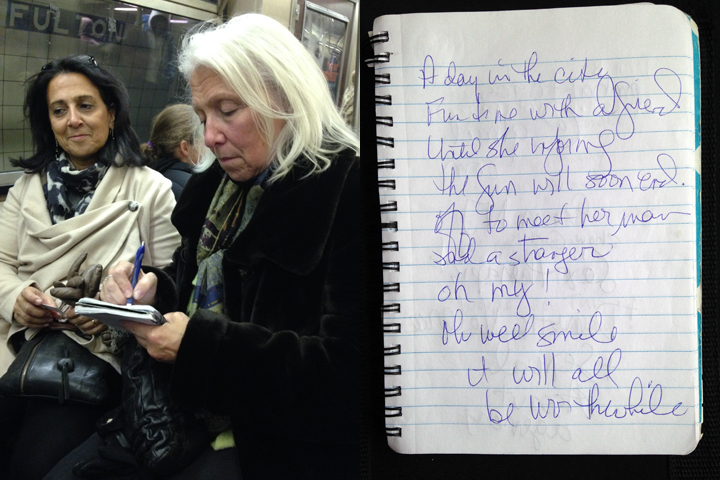 FULTON
A day in the city
Fun time with a friend
Until she informs
the fun will soon end.
off to meet her man
said a stranger
oh my!
Oh well smile
it will all
be worthwhile